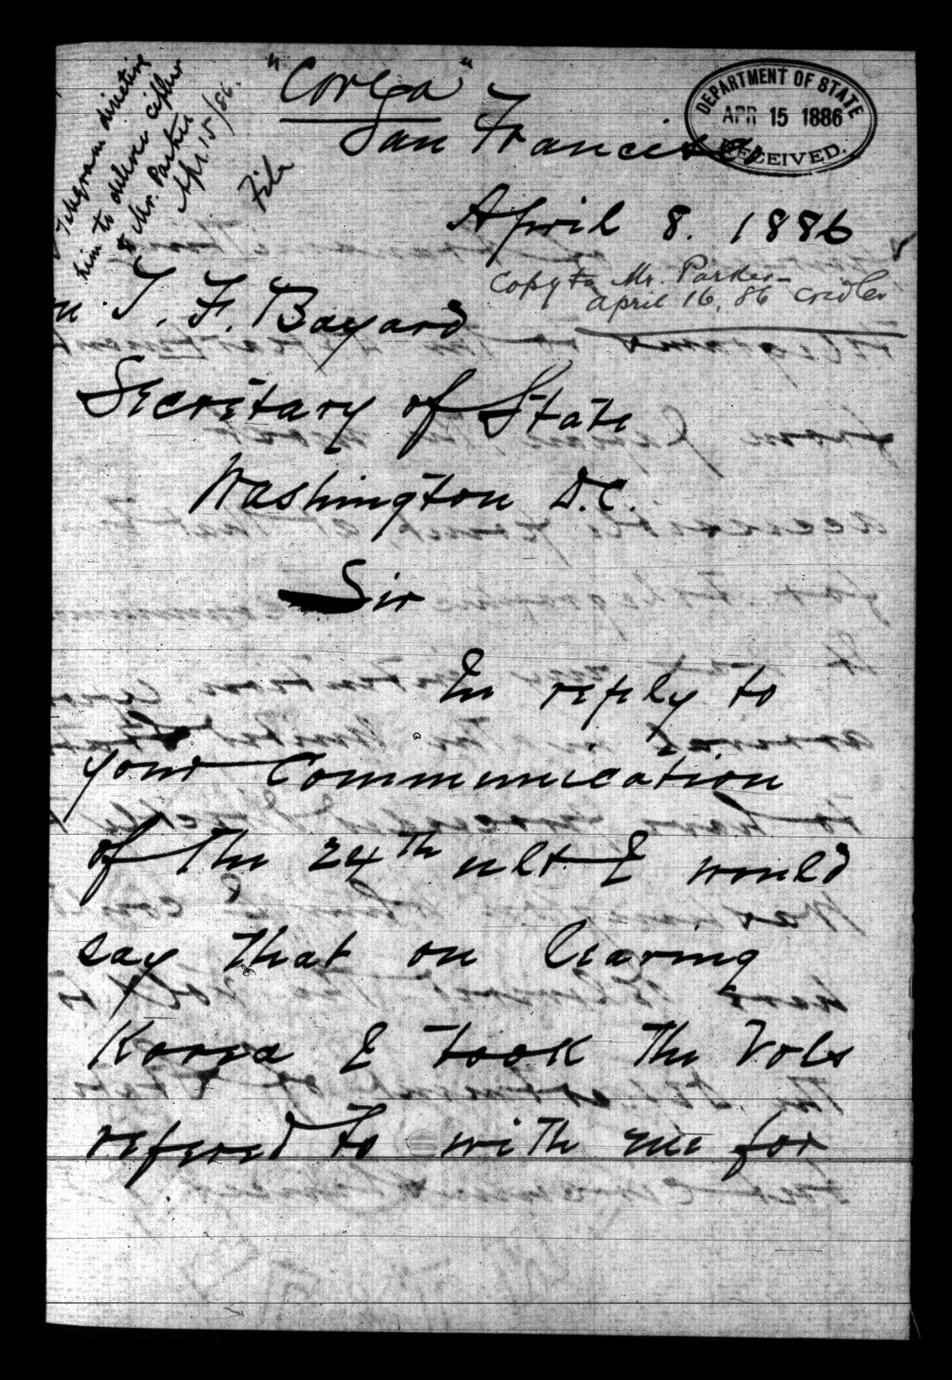 Telegram directing
him to deliver cipher
to Mr. Parker
Apr 15/86.
File
"Corea"
San Francisco
DEPARTMENT OF STATE
APR 15 1886
RECEIVED.
April 8. 1886
Copy to Mr. Parker
April 16, 86
n T. F. Bayard
Secretary of State
Washington D.C.
Sir
In reply to
your Communication
of the 24th ult I would
say that on leaving
Korea I took the Vols
refered to with me for